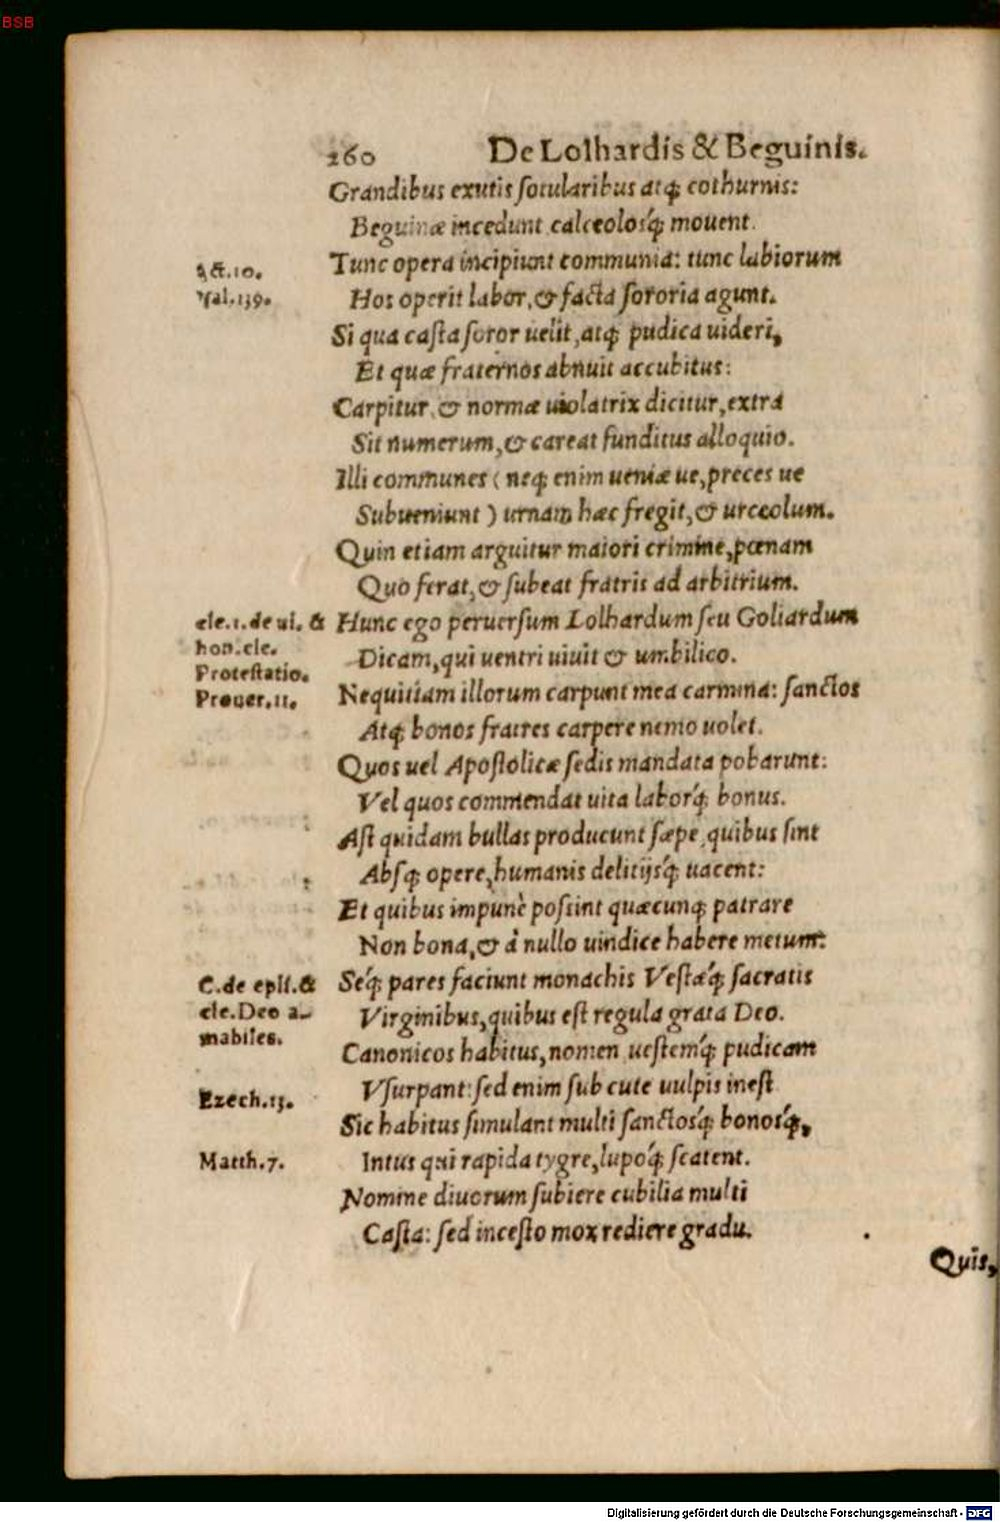 BSB
260 De Lolhardis & Beguinis.
Grandibus exutis sotularibus atq; cothurnis:
Beguinæ incedunt calceolosq́; mouent.
Tunc opera incipiunt communia: tunc labiorum
Act.10.
Hos operit labor, & facta sororia agunt.
Psal.139.
Si qua casta soror uelit, atq; pudica uideri,
Et quæ fraternos abnuit accubitus:
Carpitur, & normæ uiolatrix dicitur, extra
Sit numerum, & careat funditus alloquio.
Illi communes (neq; enim ueniæ ue, preces ue
Subueniunt) urnam hæc fregit, & urceolum.
Quin etiam arguitur maiori crimine, pœnam
Quo ferat, & subeat fratris ad arbitrium.
Hunc ego peruersum Lolhardum seu Goliardum
cle.1.de ui. &
hon.cle.
Dicam, qui uentri uiuit & umbilico.
Protestatio.
Nequitiam illorum carpunt mea carmina: sanctos
Prouer.11.
Atq; bonos fratres carpere nemo uolet.
Quos uel Apostolicæ sedis mandata pobarunt:
Vel quos commendat uita laborq́; bonus.
Ast quidam bullas producunt sæpe, quibus sint
Absq; opere, humanis delitijsq́; uacent:
Et quibus impunè possint quæcunq; patrare
Non bona, & à nullo uindice habere metum:
Seq́; pares faciunt monachis Vestæq́; sacratis
C.de epis.&
cle.Deo a-
mabiles.
Virginibus, quibus est regula grata Deo.
Canonicos habitus, nomen uestemq́; pudicam
Vsurpant: sed enim sub cute uulpis inest
Ezech.13.
Sic habitus simulant multi sanctosq́; bonosq́;,
Intus qui rapida tygre, lupoq́; scatent.
Matth.7.
Nomine diuorum subiere cubilia multi
Casta: sed incesto mox rediere gradu.
Quis,
Digitalisierung gefördert durch die Deutsche Forschungsgemeinschaft - DFG